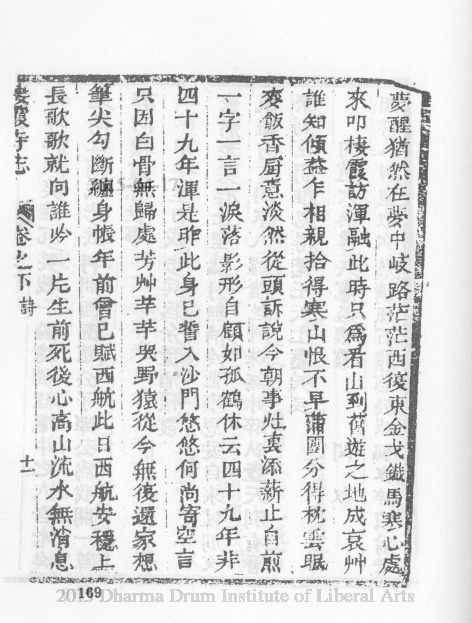 夢醒猶然在夢中岐路茫茫西復東金戈鐵馬寒心處
來叩棲霞訪渾融此時只爲看山到舊遊之地成哀艸
誰知傾葢乍相親拾得寒山恨不早蒲團分得枕雲眠
麥飯香厨意淡然從頭訴說今朝事灶裏添薪止自煎
一字一言一淚落影形自顧如孤鶴休云四十九年非
四十九年渾是昨此身已誓入沙門悠悠何尚寄空言
只因白骨無歸處芳艸芊芊哭野猿從今無復還家想
筆尖勾斷纏身帳年前曾已賦西航此日西航安穩上
長歌歌就向誰吟一片生前死後心高山流水無消息
棲霞寺志 卷之下 詩 十一
169
2015 Dharma Drum Institute of Liberal Arts